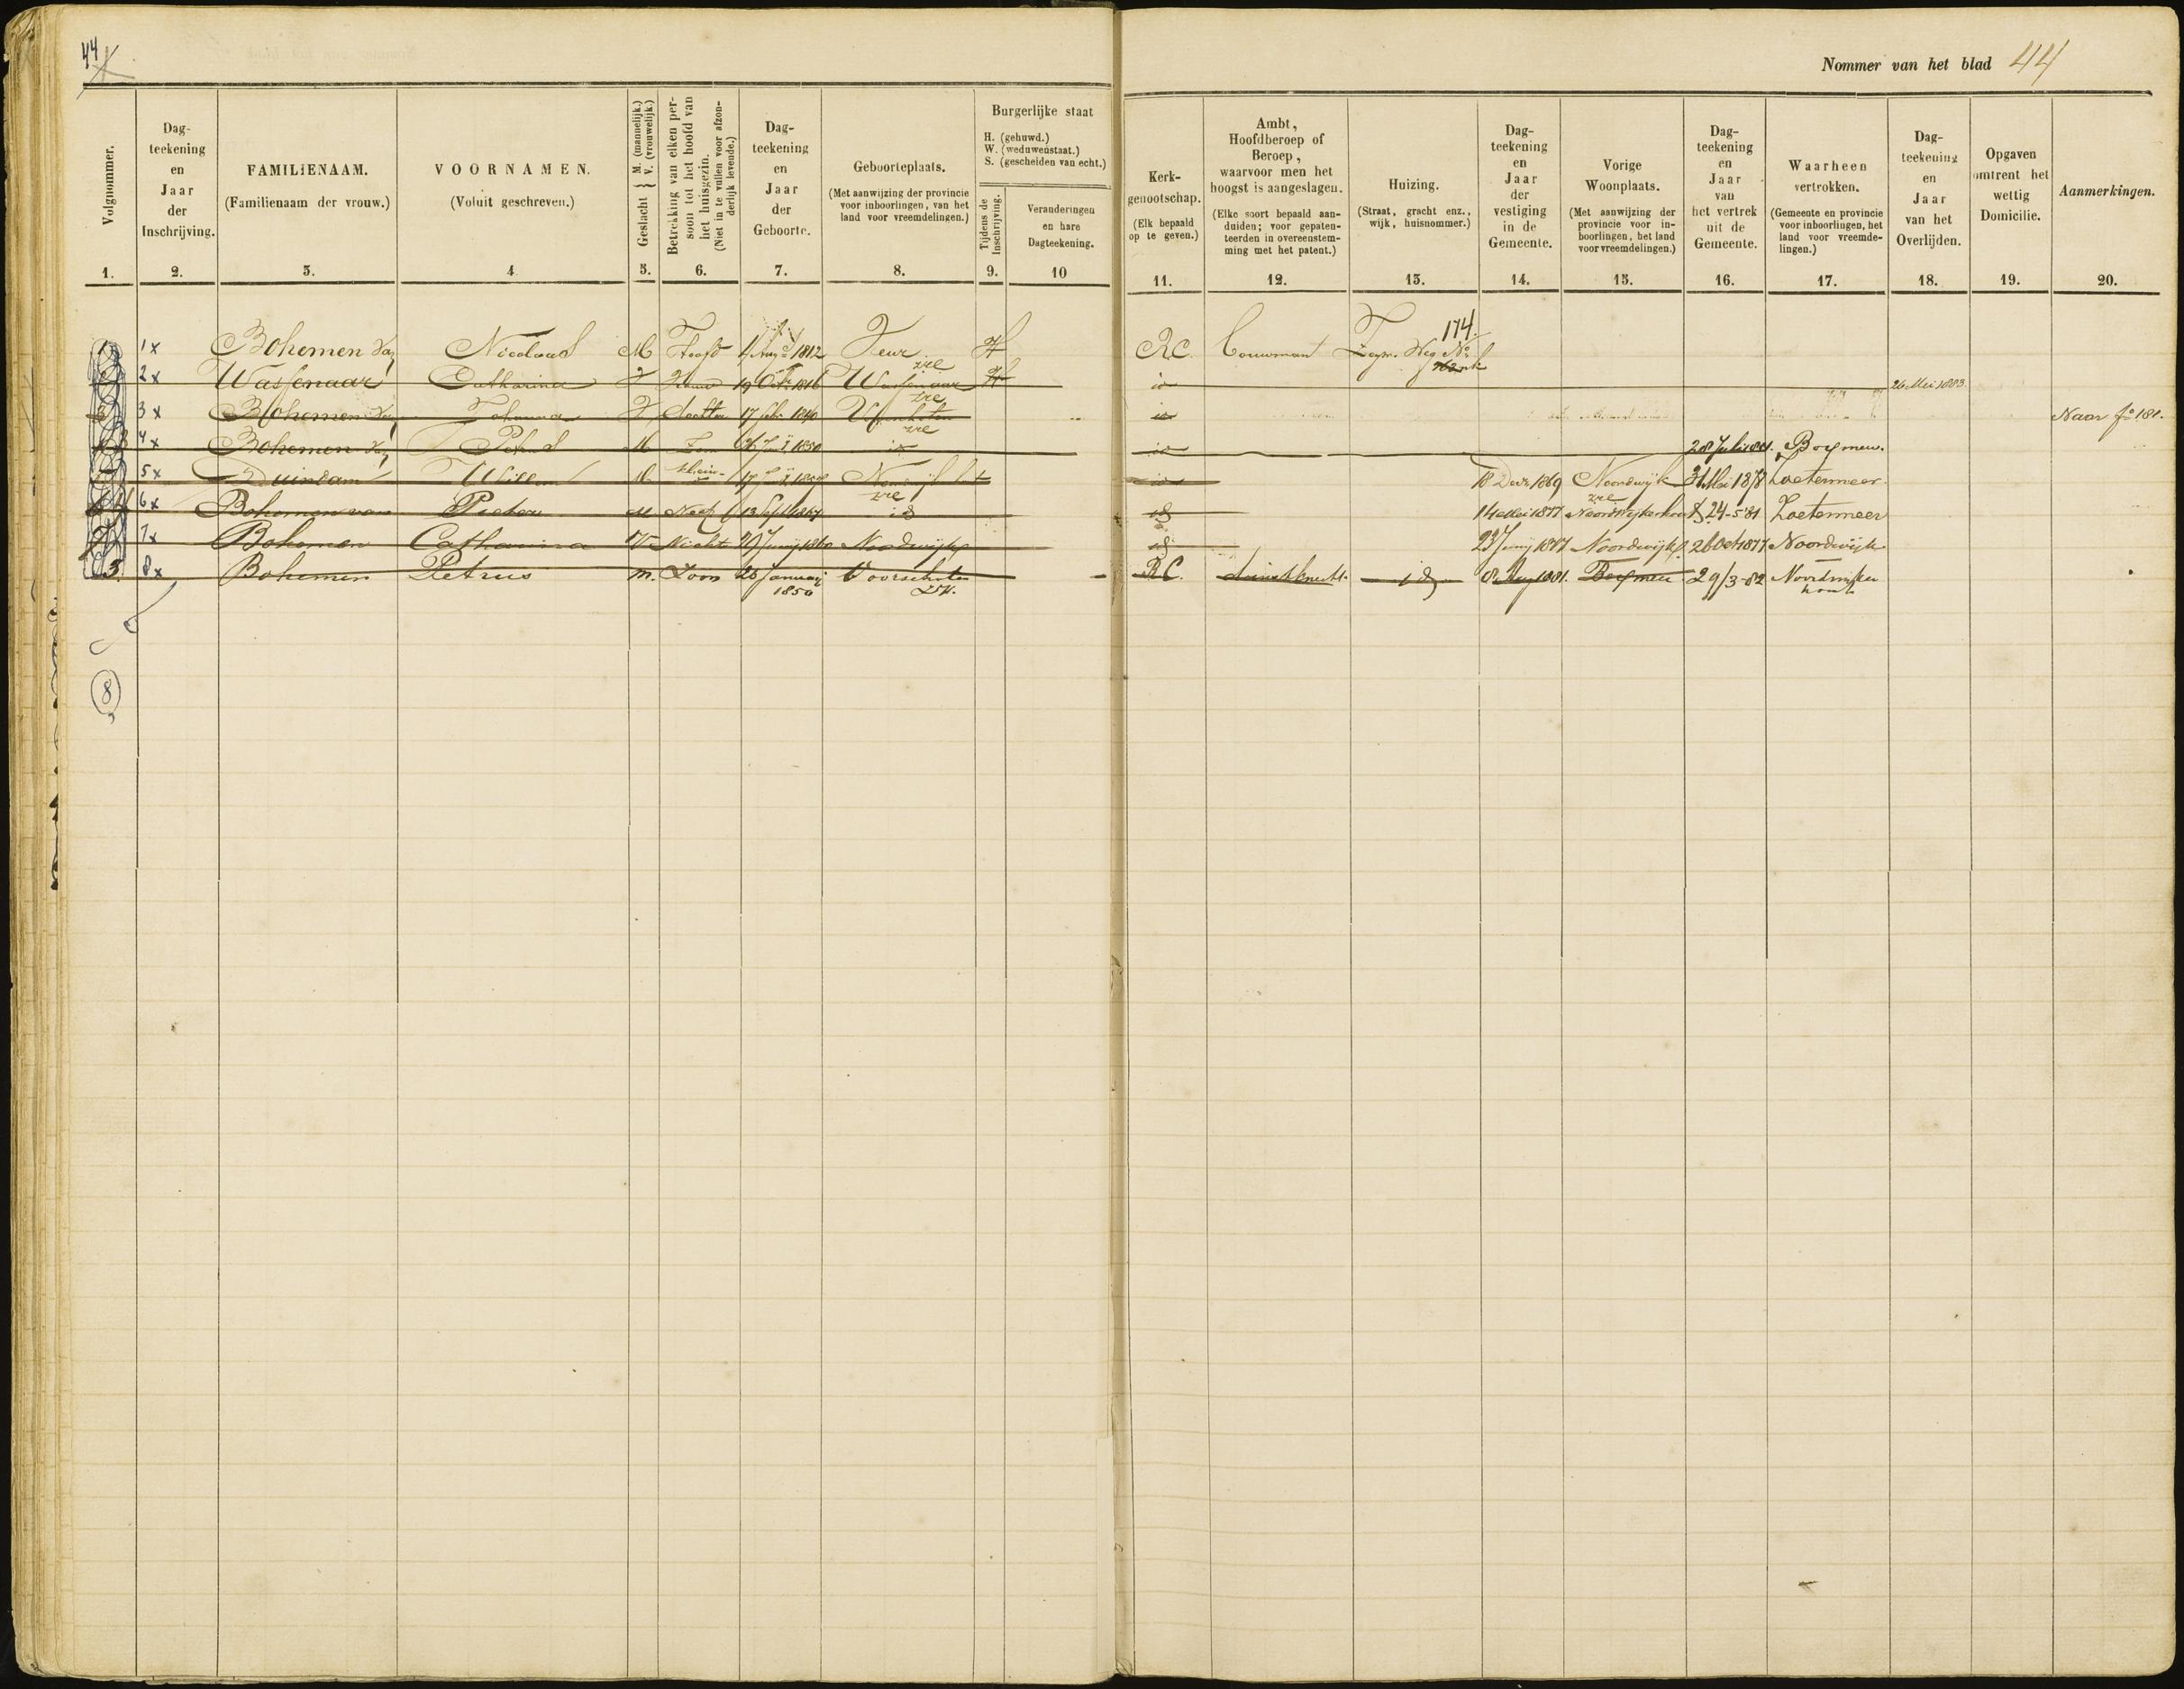 44
Nommer van het blad 44
Volgnommer.
1.
Dag-
teekening
en
Jaar
der
Inschrijving.
2.
FAMILIENAAM.
(Familienaam der vrouw.)
3.
VOORNAMEN.
(Voluit geschreven.)
4
Geslacht { M. (mannelijk.) V. (vrouwelijk.)
5.
Betrekking van elken per-
soon tot het hoofd van
het huisgezin.
(Niet in te vullen voor afzon-
derlijk levende.)
6.
Dag-
teekening
en
Jaar
der
Geboorte.
7.
Geboorteplaats.
(Met aanwijzing der provincie
voor inboorlingen, van het
land voor vreemdelingen.)
8.
Burgerlijke staat
H. (gehuwd.)
W. (weduwenstaat.)
S. (gescheiden van echt.)
Tijdens de
Inschrijving.
9.
Veranderingen
en hare
Dagteekening.
10
Kerk-
genootschap.
(Elk bepaald
op te geven.)
11.
Ambt,
Hoofdberoep of
Beroep,
waarvoor men het
hoogst is aangeslagen.
(Elke soort bepaald aan-
duiden; voor gepaten-
teerden in overeenstem-
ming met het patent.)
12.
Huizing.
(Straat, gracht enz.,
wijk, huisnommer.)
13.
Dag-
teekening
en
Jaar
der
vestiging
in de
Gemeente.
14.
Vorige
Woonplaats.
(Met aanwijzing der
provincie voor in-
boorlingen, het land
voor vreemdelingen.)
15.
Dag-
teekening
en
Jaar
van
het vertrek
uit de
Gemeente.
16.
Waarheen
vertrokken.
(Gemeente en provincie
voor inboorlingen, het
land voor vreemde-
lingen.)
17.
Dag-
teekening
en
Jaar
van het
Overlijden.
18.
Opgaven
omtrent het
wettig
Domicilie.
19.
Aanmerkingen.
20.
1x Bohemen van Nicolaas M Hoofd 1812 Veur H RC. Bouwman 174.
2x Wassenaar Catharina V Vrouw 19 Oct. 1816 Wassenaar H id 26 Mei 1883
3x Bohemen van Johanna V dochter 17 1840 id Naar fo. 181.
4x Bohemen van Petrus M Zoon 1850 id id 28 Juli 1881. Boxmeer.
5x Duindam Willem M id 18 Decr. 1869 Noordwijk 31 Mei 1878 Zoetermeer
6x Bohemen van Pieter M Neef 13 Sept 1867 id id 14 Mei 1877 Noordwijkerhout 24-5'81 Zoetermeer
7x Bohemen Catharina V Nicht 20 Junij 1860 Noordwijk id Noordwijk 26 Oct 1877 Noordwijk
8x Bohemen Petrus m. Zoon Januarij 1850 Voorschoten ZH. RC. id 1881. Boxmeer 29/3-82 Noordwijker
hout
8